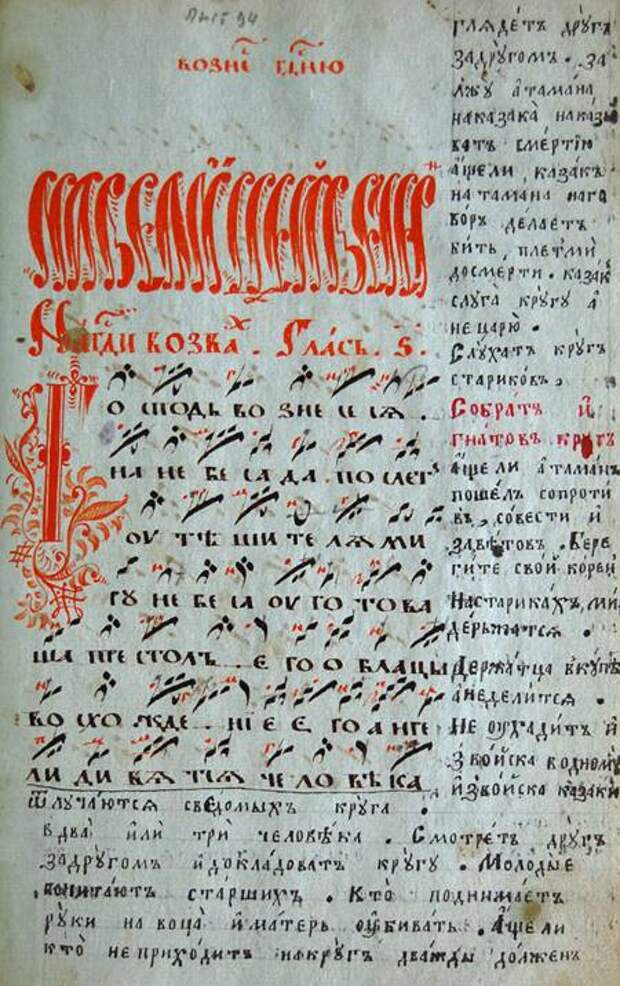 Лист 94
возне̃ гд̃ню
На гд̃и возва х . Гласъ . ѕ .
Г о сподь во зне се ся .
на не бе са да . по слетъ
оу тѣ ши те ля ми
ру не бе са оу го то ва
ша пре столъ . е го о блацы
во схо жде . ни е е го а нге
ли ди вя тся че ло вѣ ка
глядетъ другъ
задругомъ . за
лжу атамана
наказака наказы
ватъ смертию
ашели казакъ
натамана наго
воръ делаетъ
битъ плетми
досмерти . казак
слуга кругу а
не царю .
Слухатъ кругъ
стариковъ .
Собратъ и
гнатовъ кругъ
ашели атаманъ
пошелъ сопроти
въ совести и
завѣтов . Бере
гите свой корен
настариках, ми
держатся .
Держатца вкупѣ
анеделится .
не оухадитъ и
звойска водному
извойска казаки
ѿлучаются сведомыхъ круга .
вдва или три человѣка . Смотретъ другъ
задругомъ идокладоватъ кругу . Молодые
почитаютъ старшихъ . Кто поднимаетъ
руки на воца иматерь оубиватъ . Ашели
кто неприходитъ накругъ дважды долженъ